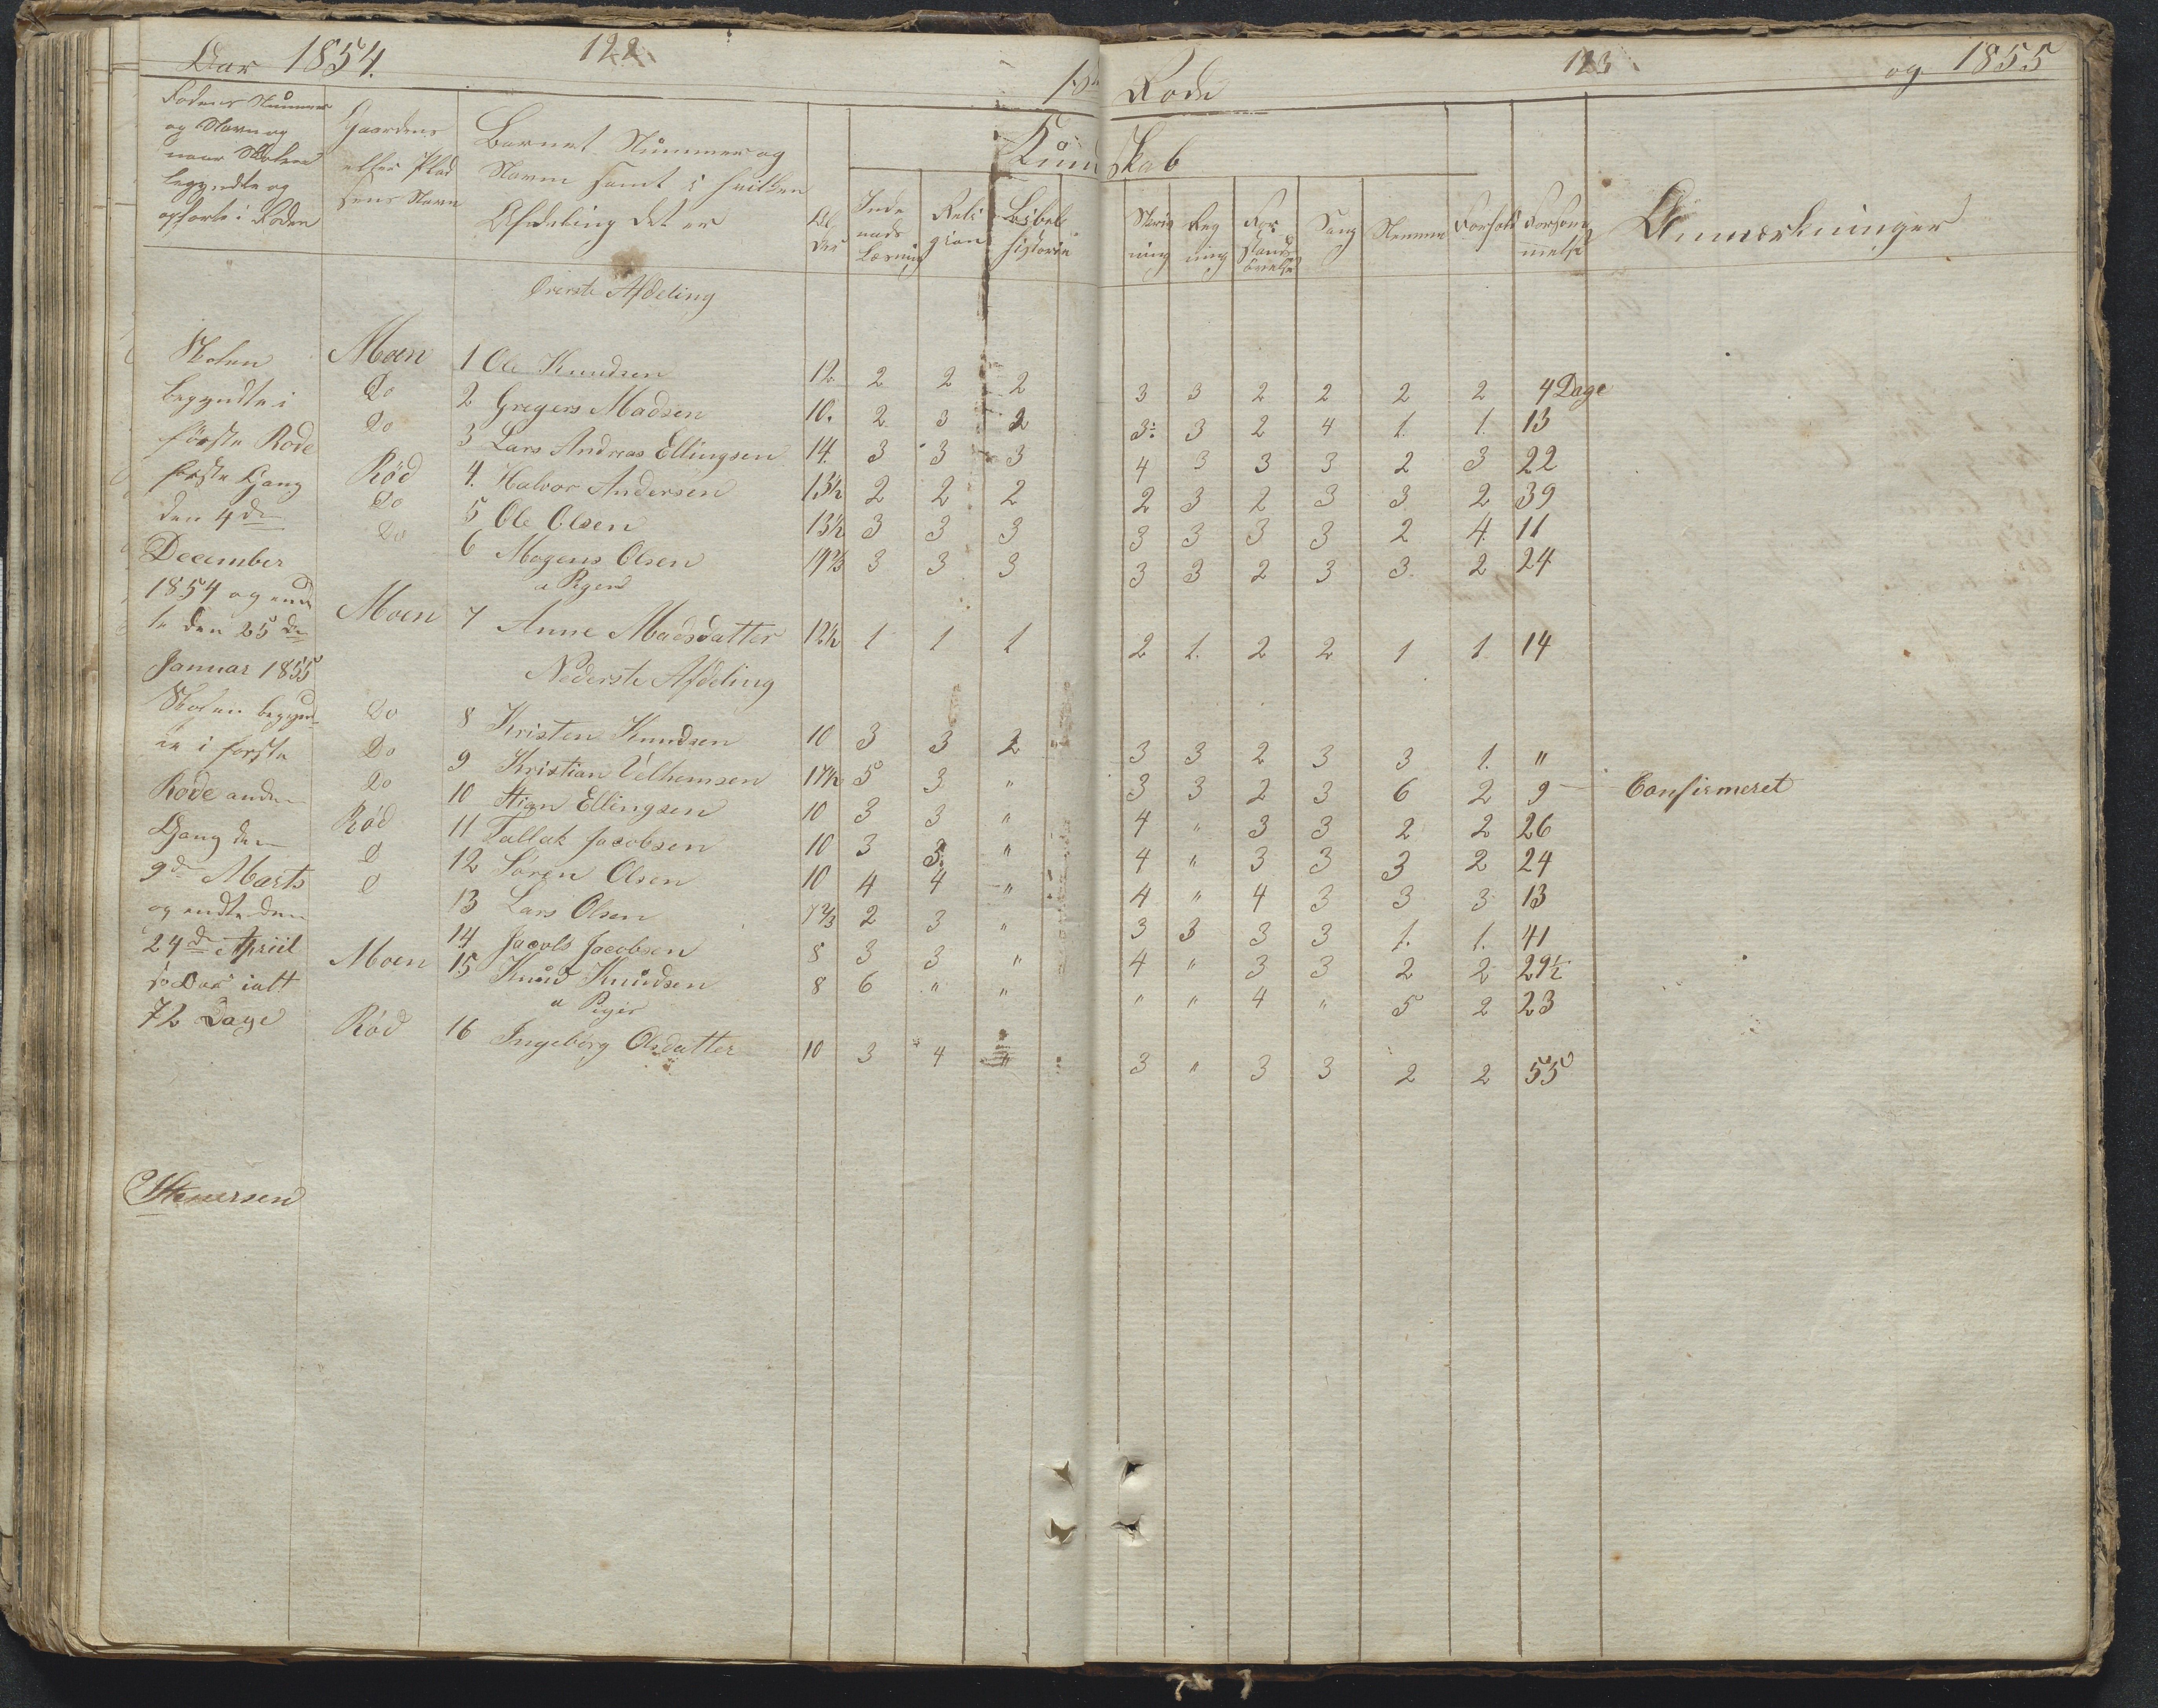 Aar 1854. 122
1ste Rode 123 og 1855
Rodens Nummer
og Navn og
naar Skolen
begyndte og
ophørte i Roden
Gaardens
eller Plad
sens Navn
Barnets Nummer og
Navn samt i hvilken
Afdeling det er
Al
der
Kund skab
Inde
nads
Læsning
Reli
gion
Bibel
historie
Skriv
ning
Reg
ning
For
stands
øvelse
Sang
Nemme
Forhold
Forsøm
melse
Anmærkninger
Øverste Afdeling
Moen 1 Ole Knudsen 12 2 2 2 3 3 2 2 2 2 4 Dage
Do 2 Gregers Madsen 10. 2 3 2 3 3 2 4 1. 1. 13
Do 3 Lars Andreas Ellingsen 14. 3 3 3 4 3 3 3 2 3 22
Rød 4. Halvor Andersen 13½ 2 2 2 2 3 2 3 3 2 39
Do 5 Ole Olsen 13½ 3 3 3 3 3 3 3 2 4. 11
Do 6 Mogens Olsen 3 3 3 3 3 2 3 3 2 24
a Pigen
Moen 7 Anne Madsdatter 12½ 1 1 1 2 1. 2 2 1 1 14
Nederste Afdeling
Do 8 Kristen Knudsen 10 3 3 2 3 3 2 3 3 1. "
Do 9 Kristian Velhemsen 17½ 5 3 " 3 3 2 3 6 2 9 – Confirmeret
Do 10 Stian Ellingsen 10 3 3 " 4 " 3 3 2 2 26
Rød 11 Tallak Jacobsen 10 3 3. " 4 " 3 3 3 2 24
D 12 Søren Olsen 10 4 4 " 4 " 4 3 3 3 13
D 13 Lars Olsen 7⅔ 2 3 " 3 3 3 3 1. 1. 41
14 Jacob Jacobsen 8 3 3 " 4 " 3 3 2 2 29½
Moen 15 Knud Knudsen 8 6 " " " " 4 " 5 2 23
a Piger
Rød 16 Ingeborg Olsdatter 10 3 4 " 3 " 3 3 2 2 55
Skolen
begyndte i
første Rode
første Gang
den 4de
December
1854 og end
te den 25de
Januar 1855
Skolen begynd-
te i første
Rode anden
Gang den
9de Marts
og endte den
24de April
ialt
72 Dage
Stenersen